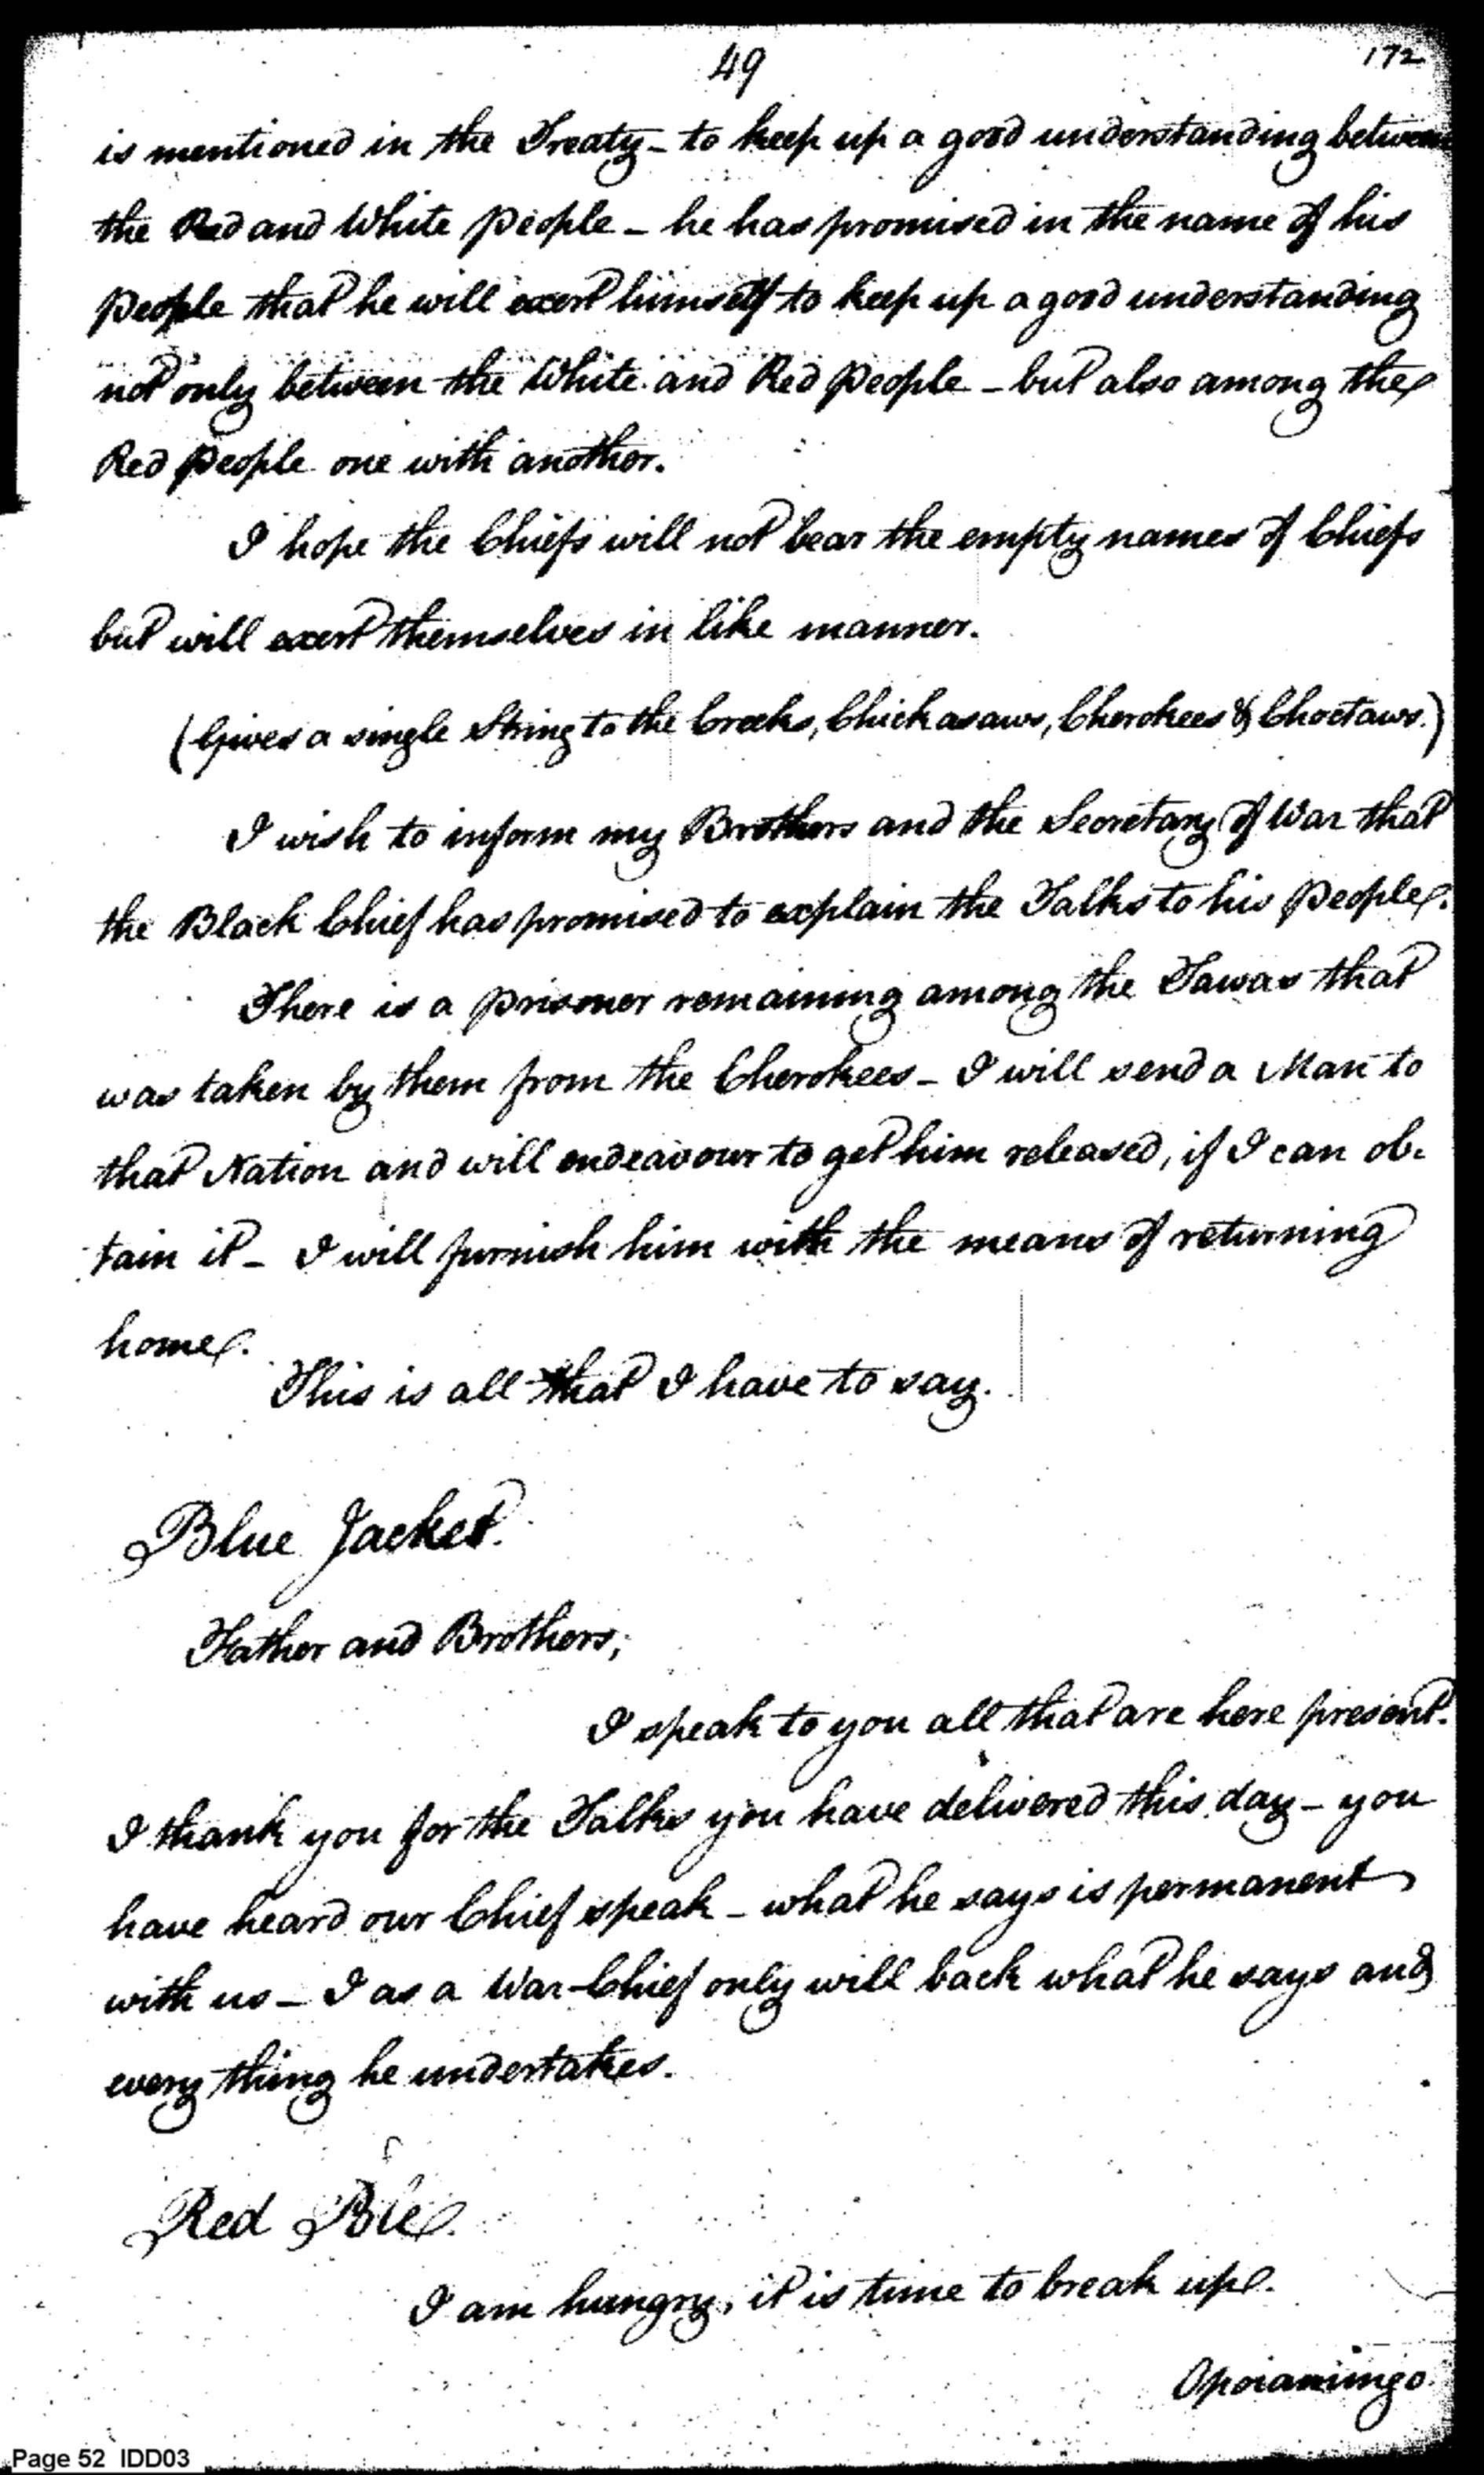 49
172
is mentioned in the Treaty - to keep up a good understanding between
the Red and White people - he has promised in the name of his
people that he will exert himself to keep up a good understanding
not only between the White and Red people - but also among the
Red people one with another.
I hope the Chiefs will not bear the empty names of Chiefs
but will exert themselves in like manner.
(Gives a single String to the Creeks, Chickasaws, Cherokees & Choctaws.)
I wish to inform my Brothers and the Secretary of War that
the Black Chief has promised to explain the Talks to his people.
There is a prisoner remaining among the Tawas that
was taken by them from the Cherokees - I will send a Man to
that Nation and will endeavour to get him released, if I can ob-
tain it - I will furnish him with the means of returning
home.
This is all that I have to say.
Blue Jacket.
Father and Brothers;
I speak to you all that are here present.
I thank you for the Talks you have delivered this day - you
have heard our Chief speak - what he says is permanent
with us - I as a War-Chief only will back what he says and
every thing he undertakes.
Red Pole.
I am hungry, it is time to break up.
Opoiamingo.
Page 52 IDD03